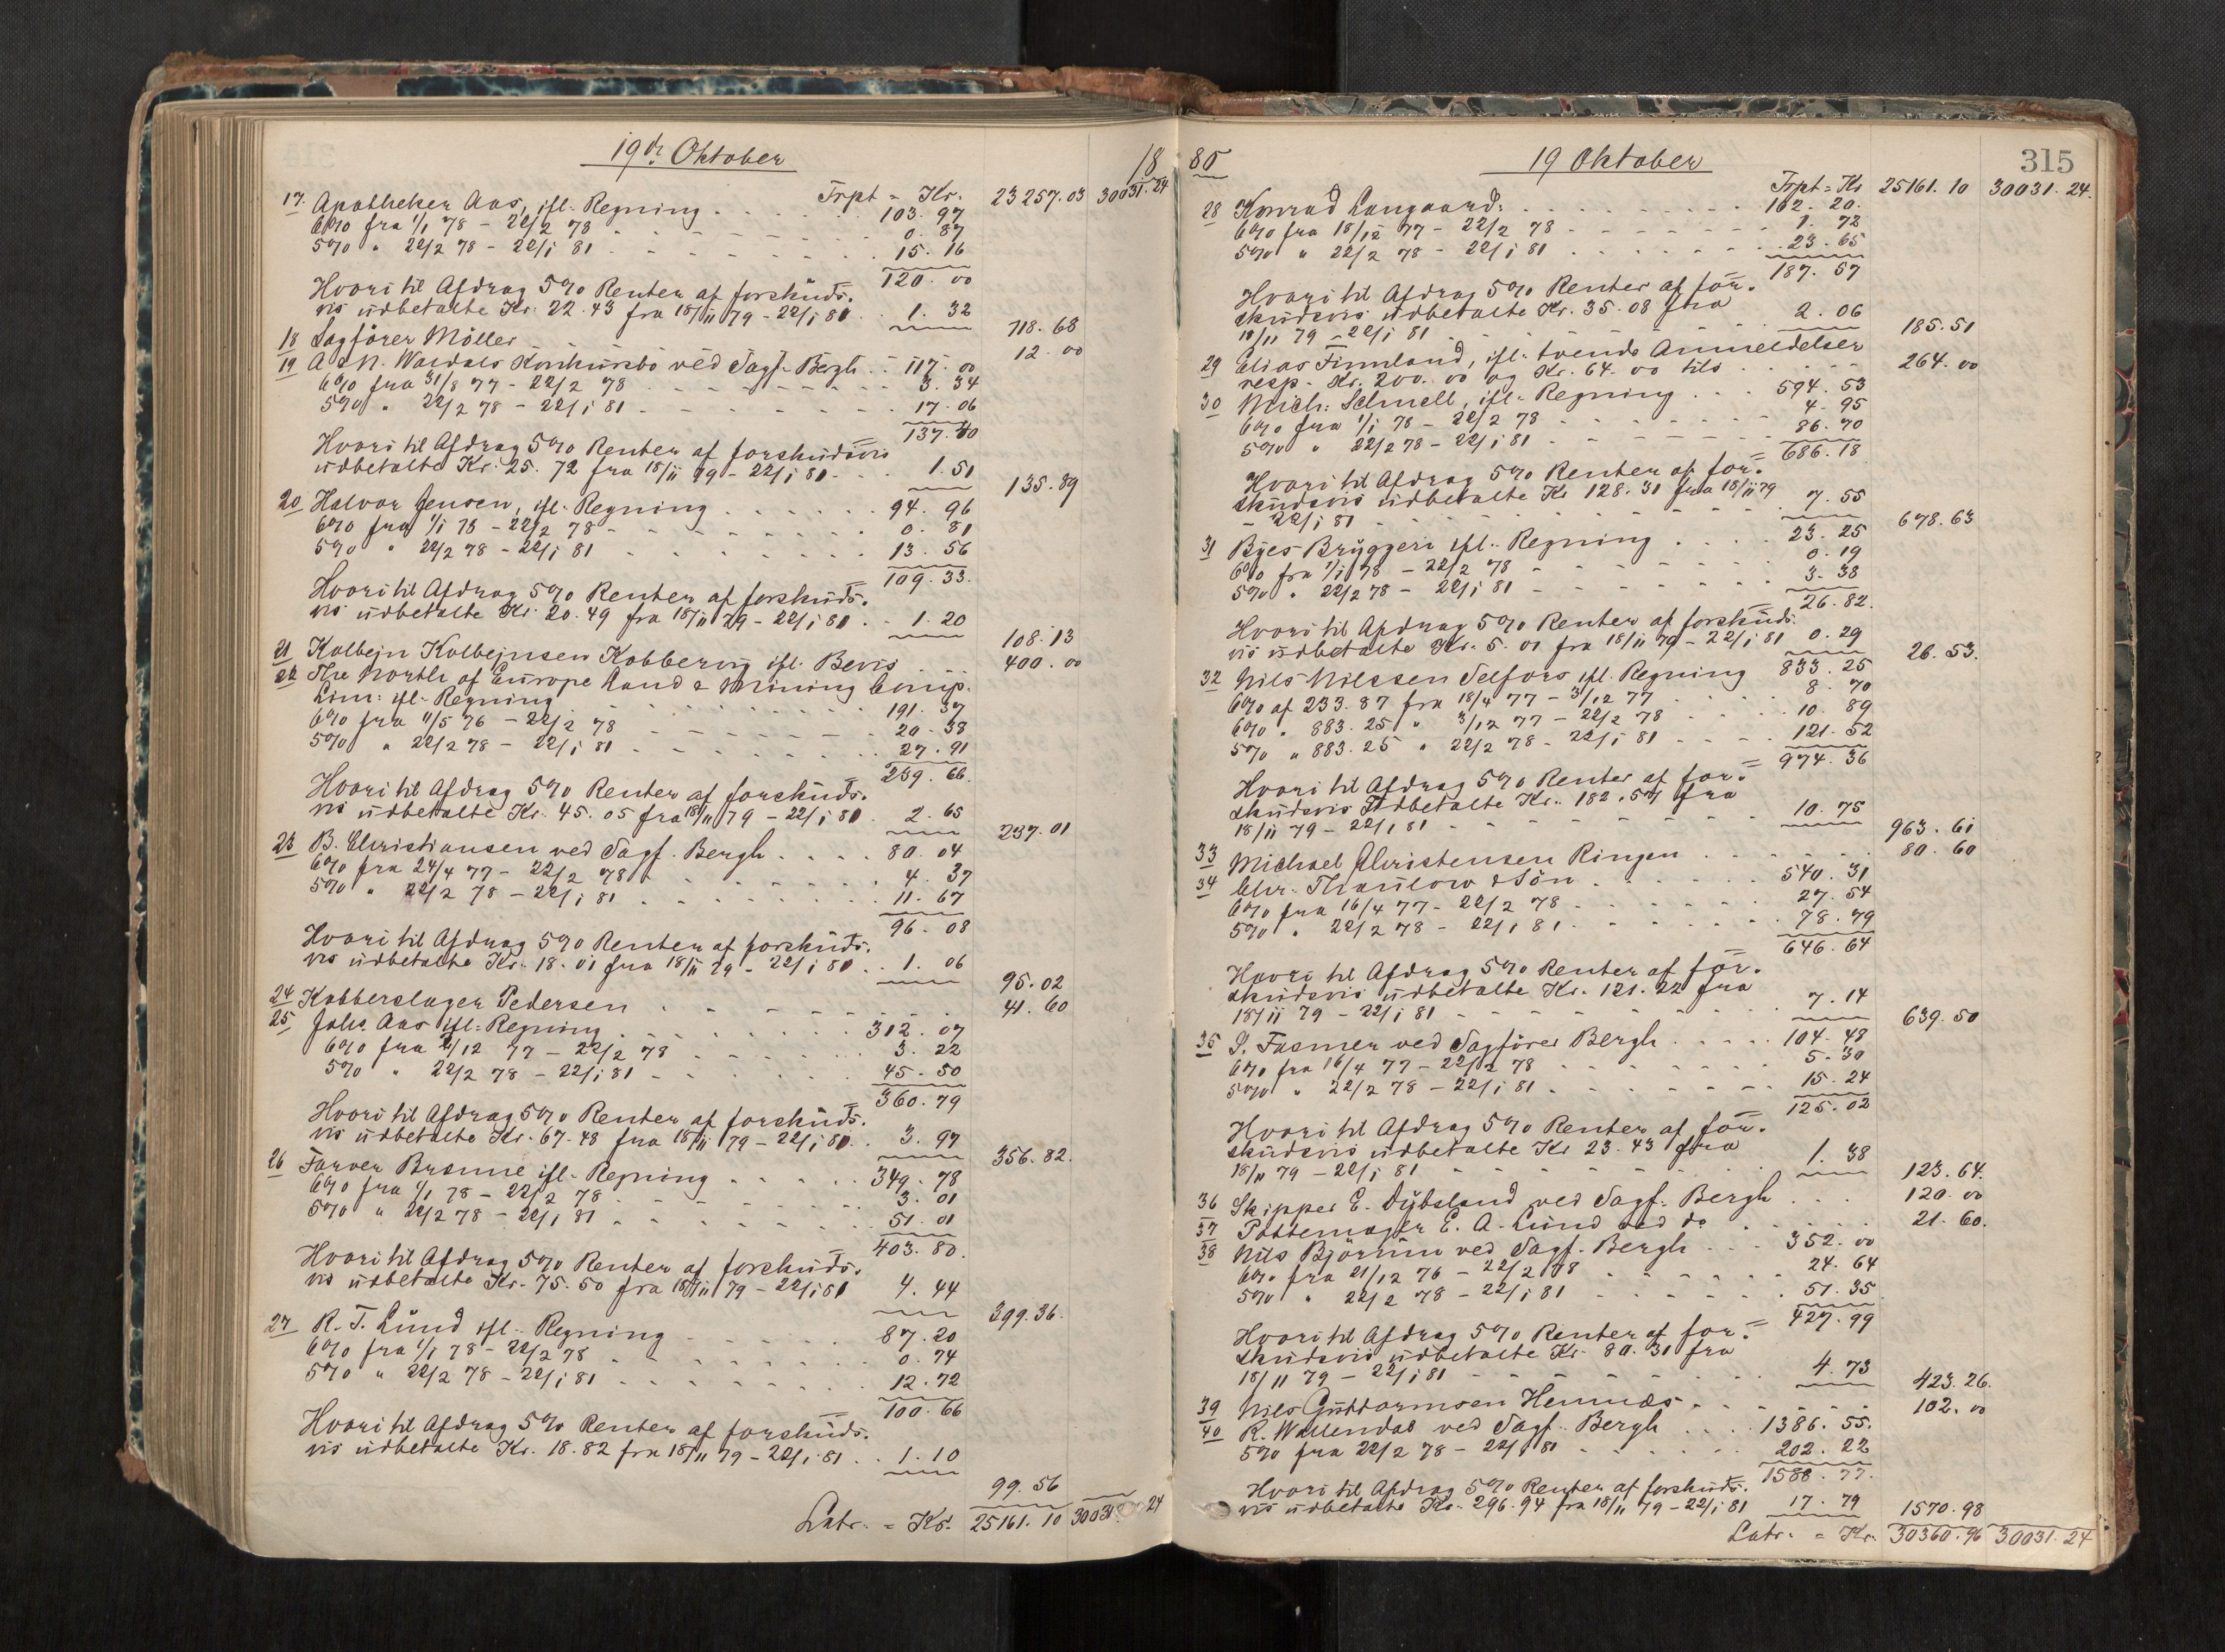 19de Oktober
18
Trpt = Kr. 23257.03 30031.24
17. Apotheker Aas, ifl. Regning 103.97
6% fra 1/1 78 - 22/2 78 0.87
5% " 22/2 78 - 22/1 81 15.16
= 120.00
Hvori til Afdrag 5% Renter af forskuds-
vis udbetalte Kr. 22.43 fra 18/11 79 - 22/1 81 1.32
118.68
18 Sagförer Möller 12.00
19 A & N. Wardals Konkursbo ved Sagf. Bergh 117.00
6% fra 31/8 77 - 22/2 78 3.34
5% " 22/2 78 - 22/1 81 17.06
= 137.40
Hvori til Afdrag 5% Renter af forskudsvis
udbetalte Kr. 25.72 fra 18/11 79 - 22/1 81 1.51
135.89
20 Halvor Jensen, ifl. Regning 94.96
6% fra 1/1 78 - 22/2 78 0.81
5% " 22/2 78 - 22/1 81 13.56
= 109.33.
Hvori til Afdrag 5% Renter af forskuds-
vis udbetalte Kr. 20.49 fra 18/11 79 - 22/1 81 1.20
108.13
21 Kolbejn Kolbejnsen Kobbervig ifl. Bevis 400.00
22 The North of Europe Land & Mining Comp.
Lim: ifl. Regning 191.37
6% fra 11/5 76 - 22/2 78 20.38
5% " 22/2 78 - 22/1 81 27.91
239.66.
Hvori til Afdrag 5% Renter af forskuds-
vis udbetalte Kr. 45.05 fra 18/11 79 - 22/1 81 2.65
237.01
23 B. Christiansen ved Sagf. Bergh 80.04
6% fra 24/4 77 - 22/2 78 4.37
5% " 22/2 78 - 22/1 81 11.67
96.08
Hvori til Afdrag 5% Renter af forskuds-
vis udbetalte Kr. 18.01 fra 18/11 79 - 22/1 81 1.06
95.02
24 Kobberslager Pedersen 41.60
25 Johs. Aas ifl. Regning 312.07
6% fra 21/12 77 - 22/2 78 3.22
5% " 22/2 78 - 22/1 81 45.50
= 360.79
Hvori til Afdrag 5% Renter af forskuds-
vis udbetalte Kr. 67.48 fra 18/11 79 - 22/1 81 3.97
356.82.
26 Farver Brunne ifl. Regning 349.78
6% fra 1/1 78 - 22/2 78 3.01
5% " 22/2 78 - 22/1 81 51.01
= 403.80.
Hvori til Afdrag 5% Renter af forskuds-
vis udbetalte Kr. 75.50 fra 18/11 79 - 22/1 81 4.44
399.36.
27 R. T. Lund ifl. Regning 87.20
6% fra 1/1 78 - 22/2 78 0.74
5% " 22/2 78 - 22/1 81 12.72
= 100.66
Hvori til Afdrag 5% Renter af forskuds-
vis udbetalte Kr. 18.82 fra 18/11 79 - 22/1 81 1.10
99.56
Latr. = Kr. 25161.10 30031.24
80
19 Oktober
315
Trpt = Kr 25161.10 30031.24.
28 Konrad Langaard. 162.20.
6% fra 18/12 77 - 22/2 78 1.72
5% " 22/2 78 - 22/1 81 23.65
= 187.57
Hvori til Afdrag 5% Renter af for-
skudsvis udbetalte Kr. 35.08 fra
18/11 79 - 22/1 81 2.06
185.51
29 Elias Finnland, ifl. tvende Anmeldelser
resp. Kr. 200.00 og Kr. 64.00 tils 264.00
30 Mich: Schnell, ifl. Regning 594.53
6% fra 1/1 78 - 22/2 78 4.95
5% " 22/2 78 - 22/1 81 86.70
= 686.18
Hvori til Afdrag 5% Renter af for-
skudsvis udbetalte Kr 128.31 fra 18/11 79
- 22/1 81 7.55
678.63
31 Byes Bryggeri ifl. Regning 23.25
6% fra 1/1 78 - 22/2 78 0.19
5% " 22/2 78 - 22/1 81 3.38
= 26.82.
Hvori til Afdrag 5% Renter af forskuds-
vis udbetalte Kr. 5.01 fra 18/11 79 - 22/1 81 0.29
26.53.
32 Nils Nilssen Selfors ifl. Regning 833.25
6% af 233.87 fra 18/4 77 - 3/12 77 8.70
6% " 883.25 " 3/12 77 - 22/2 78 10.89
5% " 883.25 " 22/2 78 - 22/1 81 121.52
= 974.36
Hvori til Afdrag 5% Renter af for-
skudsvis udbetalte Kr. 182.57 fra
18/11 79 - 22/1 81 10.75
963.61
33 Michael Christensen Ringen 80.60
34 Chr. Thaulow & Sön 540.31
6% fra 16/4 77 - 22/2 78 27.54
5% " 22/2 78 - 22/1 81 78.79
= 646.64
Hvori til Afdrag 5% Renter af for-
skudsvis udbetalte Kr. 121.22 fra
18/11 79 - 22/1 81 7.14
639.50
35 S. Fasmer ved Sagförer Bergh 104.48
6% fra 16/4 77 - 22/2 78 5.30
5% " 22/2 78 - 22/1 81 15.24
= 125.02
Hvori til Afdrag 5% Renter af for-
skudsvis udbetalte Kr 23.43 fra
18/11 79 - 22/1 81 1.38
123.64.
36 Skipper E. Dybsland ved Sagf. Bergh 120.00
37 Pottemager E. A. Lund ved do 21.60.
38 Nils Bjørnum ved Sagf. Bergh 352.00
6% fra 21/12 76 - 22/2 78 24.64
5% " 22/2 78 - 22/1 81 51.35
= 427.99
Hvori til Afdrag 5% Renter af for-
skudsvis udbetalte Kr. 80.31 fra
18/11 79 - 22/1 81 4.73
423.26.
39 Nils Guttormsen Hemnæs 102.00
40 R. Wallendal ved Sagf. Bergh 1386.55.
5% fra 22/2 78 - 22/1 81 202.22
1588.77.
Hvori til Afdrag 5% Renter af forskuds-
vis udbetalte Kr. 296.94 fra 18/11 79 - 22/1 81 17.79
1570.98
Latr. = Kr. 30360.96 30031.24